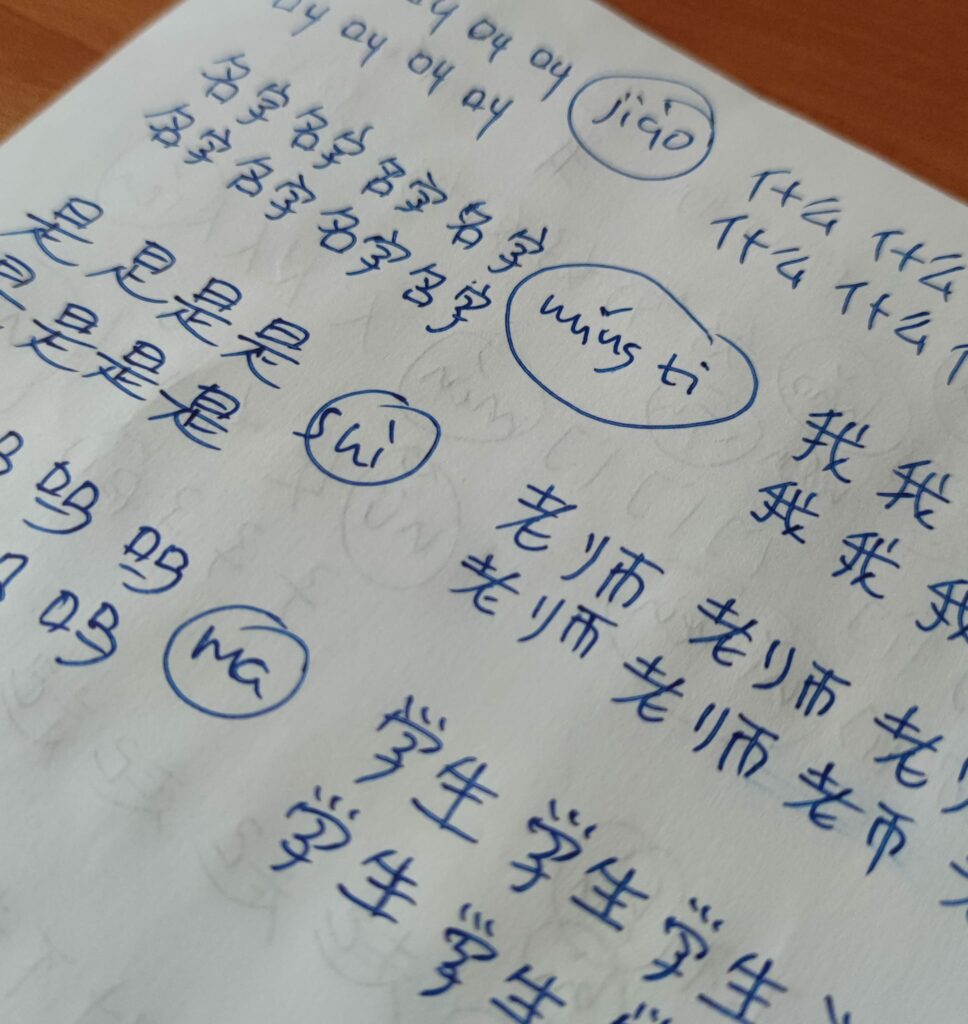 叫 叫 叫
叫 叫 叫 叫 jiào
名字 名字 名字 名字
名字 名字 名字 名字 míng zi
什么 什么
什么 什么
是 是 是 是
是 是 是 是 shì
我 我
我 我 我
吗 吗
吗 ma
老师 老师 老
老师 老师 老师
学生 学生 学生
学生 学生